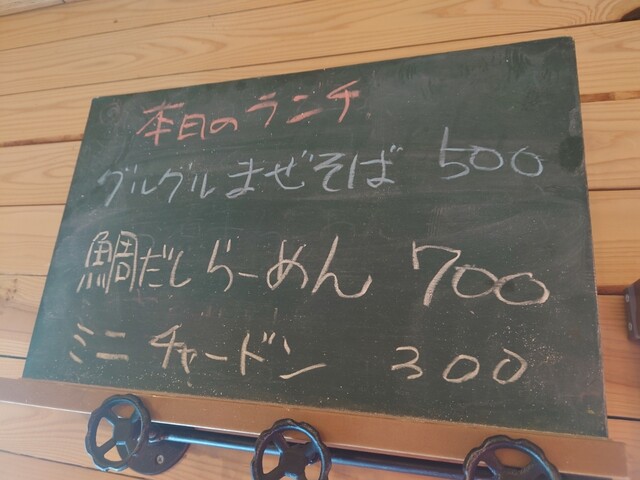 本日のランチ
グルグルまぜそば 500
鯛だしらーめん 700
ミニチャードン 300